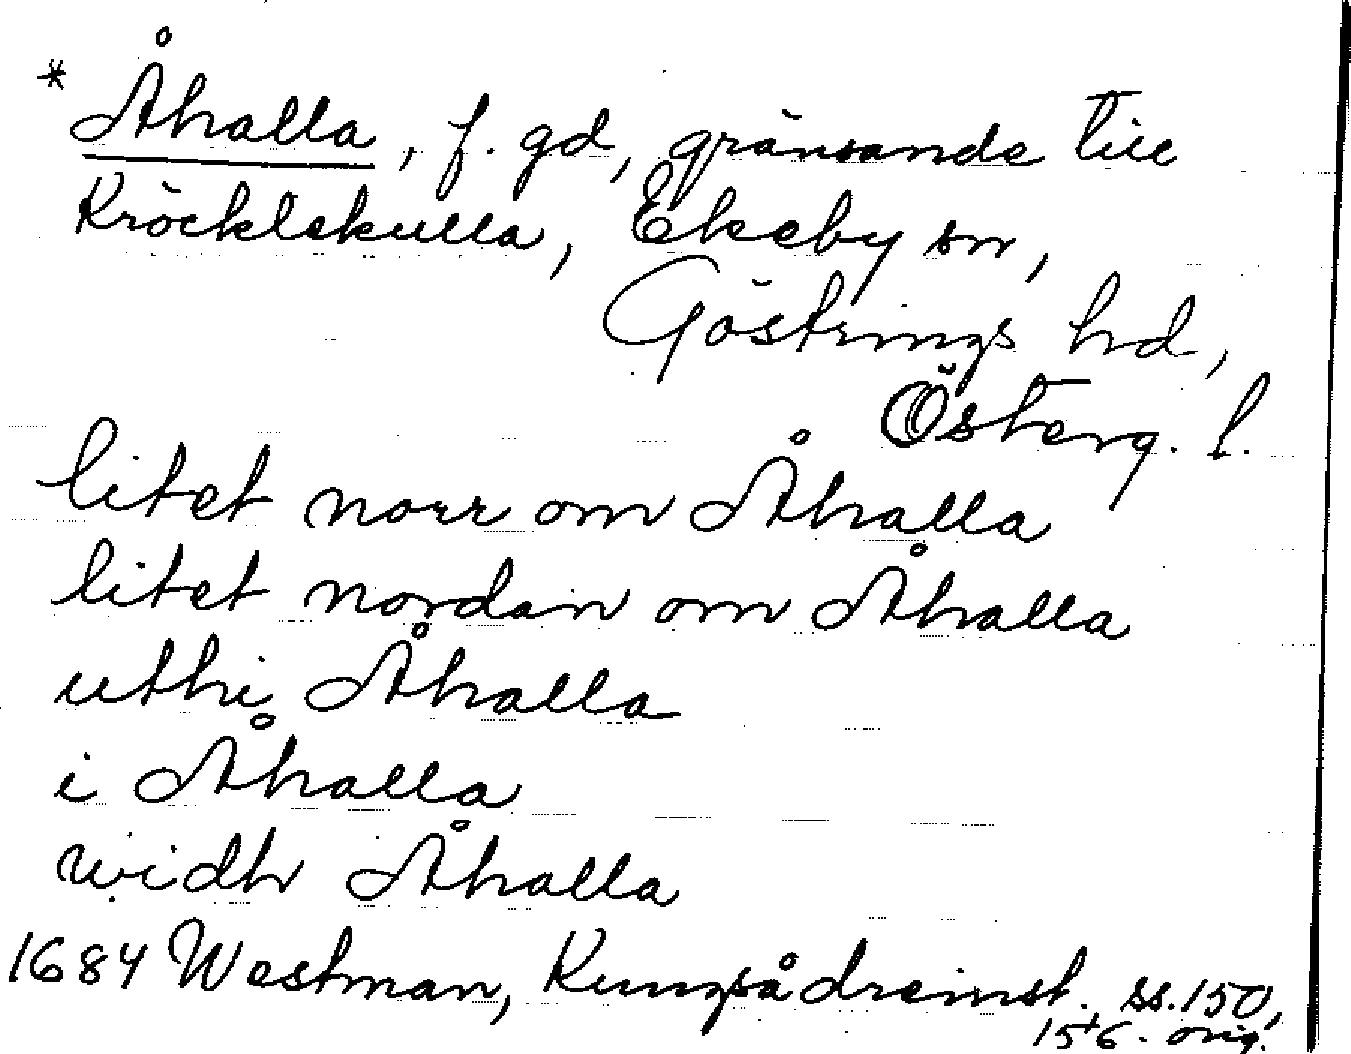 * Åhalla, f. gd, gränsande till
Kröcklekulla, Ekeby sn,
Göstrings hd,
Österg. l.
litet norr om Åhalla
litet nordan om Åhalla
uthi Åhalla
i Åhalla
widh Åhalla
1684 Westman, Kungsådreinst. ss. 150,
156. orig.